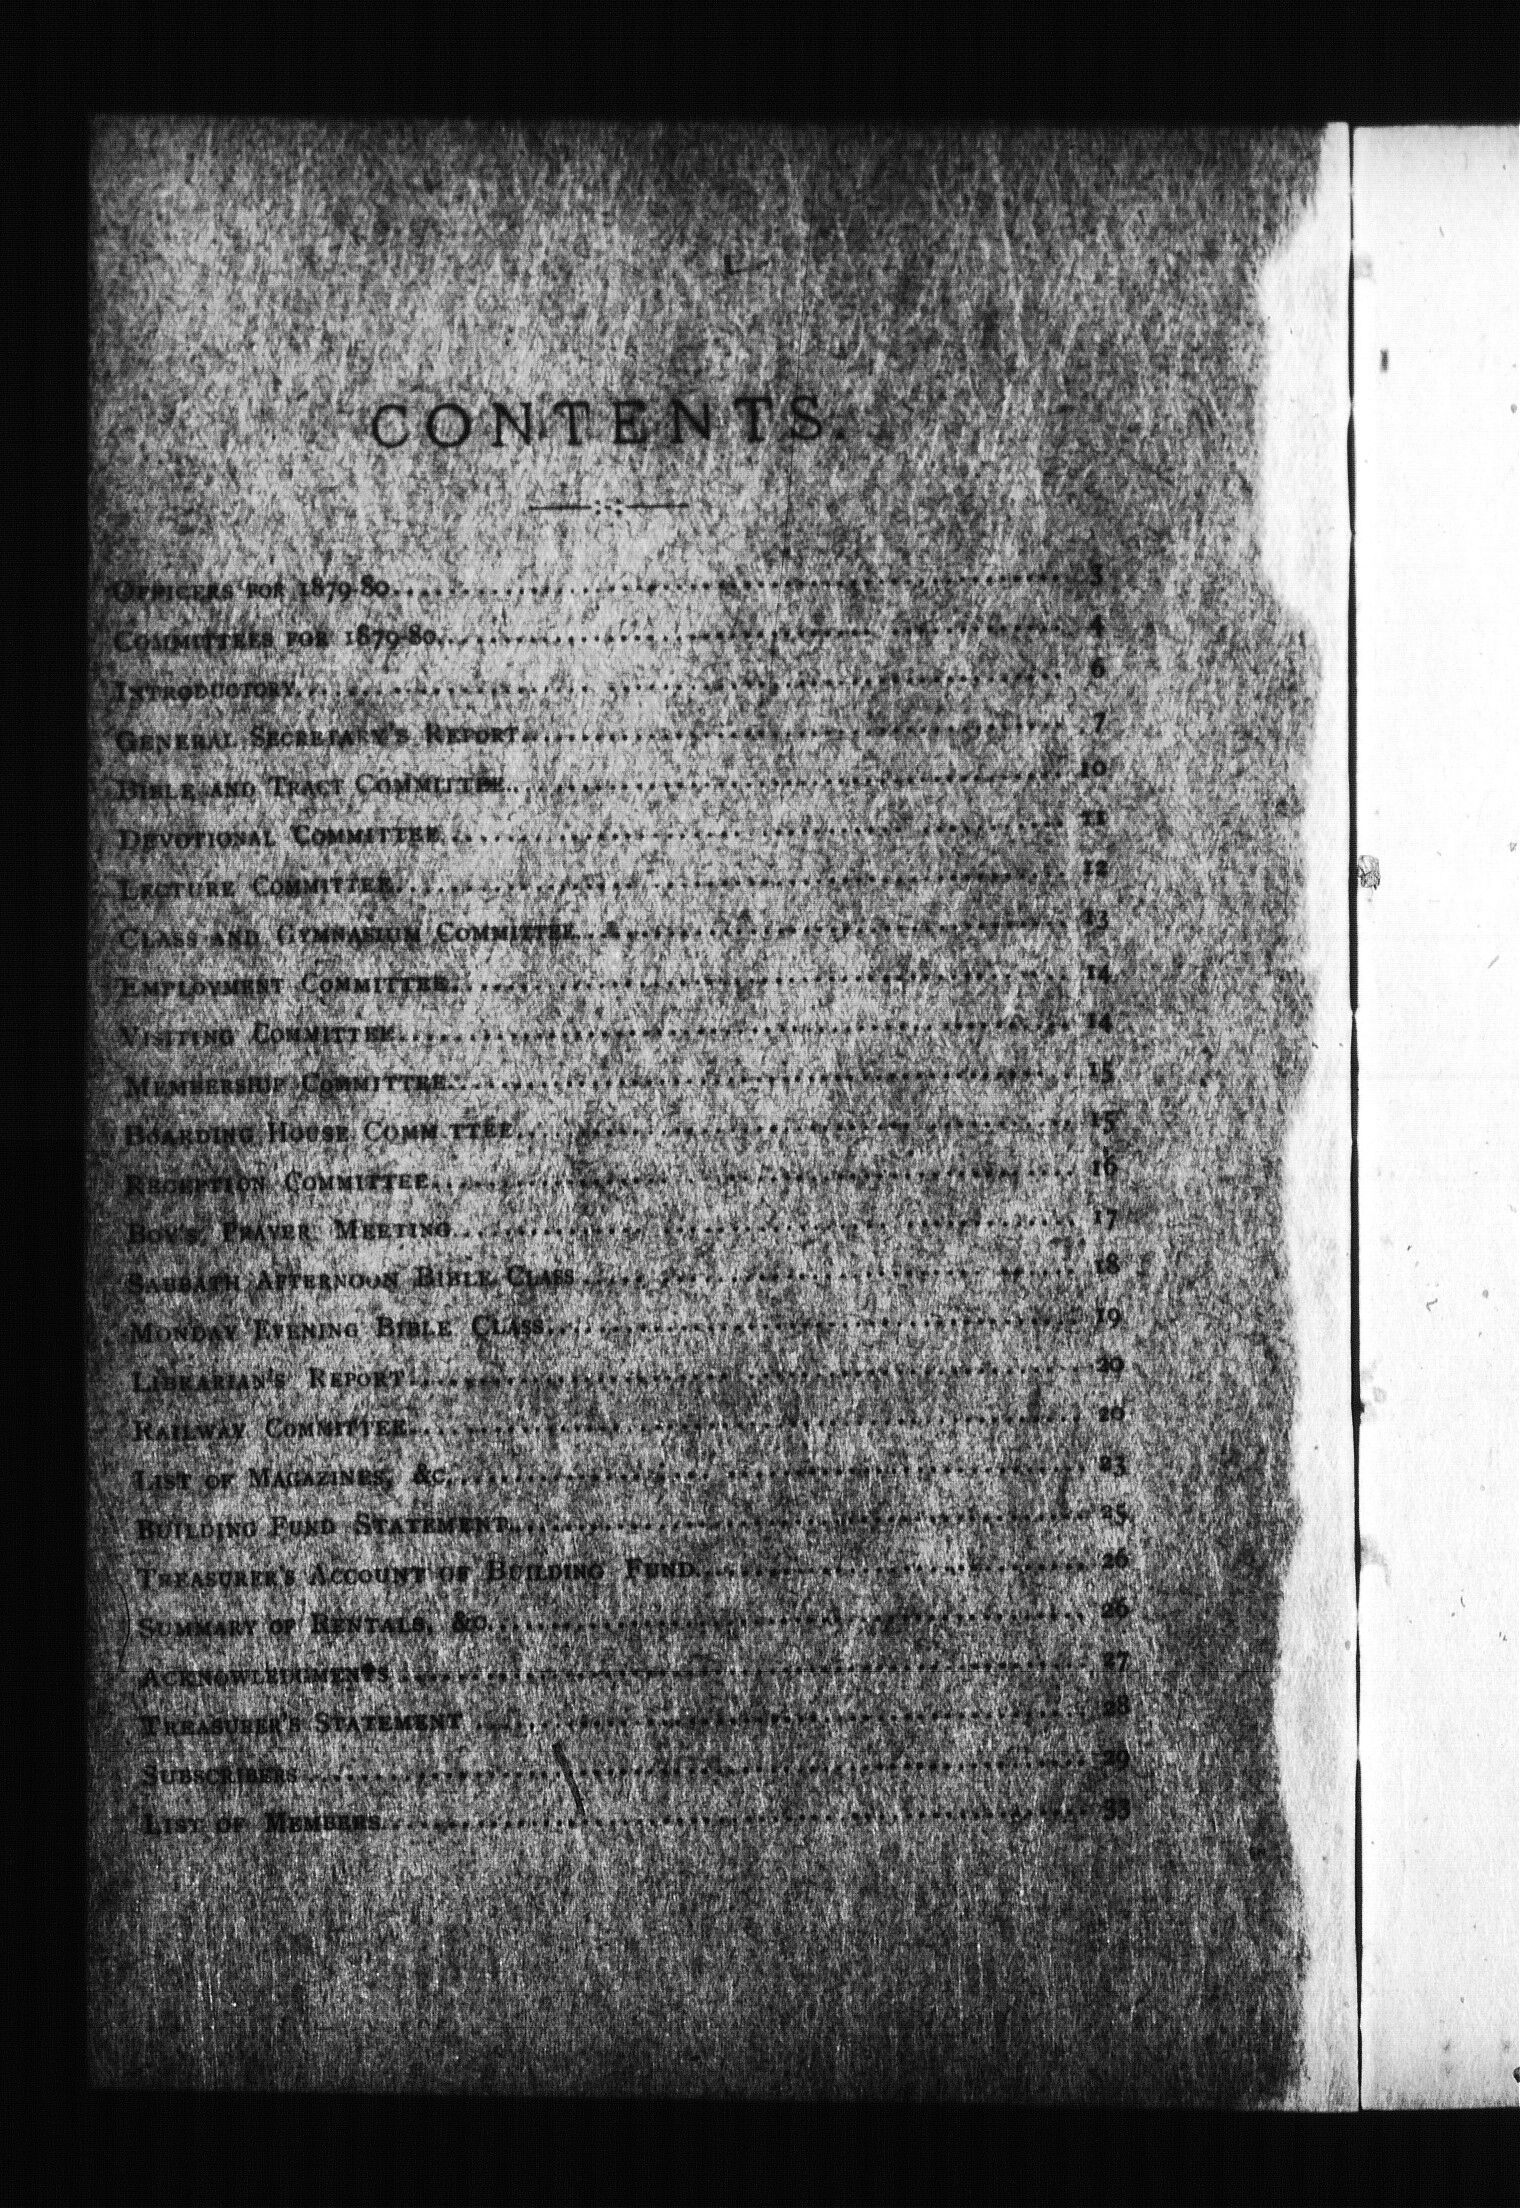 CONTENTS.
OFFICERS FOR 1879-80 3
COMMITTEES FOR 1879-80 4
INTRODUCTORY 6
GENERAL SECRETARY'S REPORT 7
BIBLE AND TRACT COMMITTEE 10
DEVOTIONAL COMMITTEE 11
LECTURE COMMITTEE 12
CLASS AND GYMNASIUM COMMITTEE 13
EMPLOYMENT COMMITTEE 14
VISITING COMMITTEE 14
MEMBERSHIP COMMITTEE 15
BOARDING HOUSE COMM TTEE 15
RECEPTION COMMITTEE 16
BOY'S PRAYER MEETING 17
SABBATH AFTERNOON BIBLE CLASS 18
MONDAY EVENING BIBLE CLASS 19
LIBRARIAN'S REPORT 20
RAILWAY COMMITTEE 20
LIST OF MAGAZINES, &C. 23
BUILDING FUND STATEMENT 25
TREASURER'S ACCOUNT OF BUILDING FUND 26
SUMMARY OF RENTALS, &C. 26
ACKNOWLEDGMENTS 27
TREASURER'S STATEMENT 28
SUBSCRIBERS 29
LIST OF MEMBERS 33